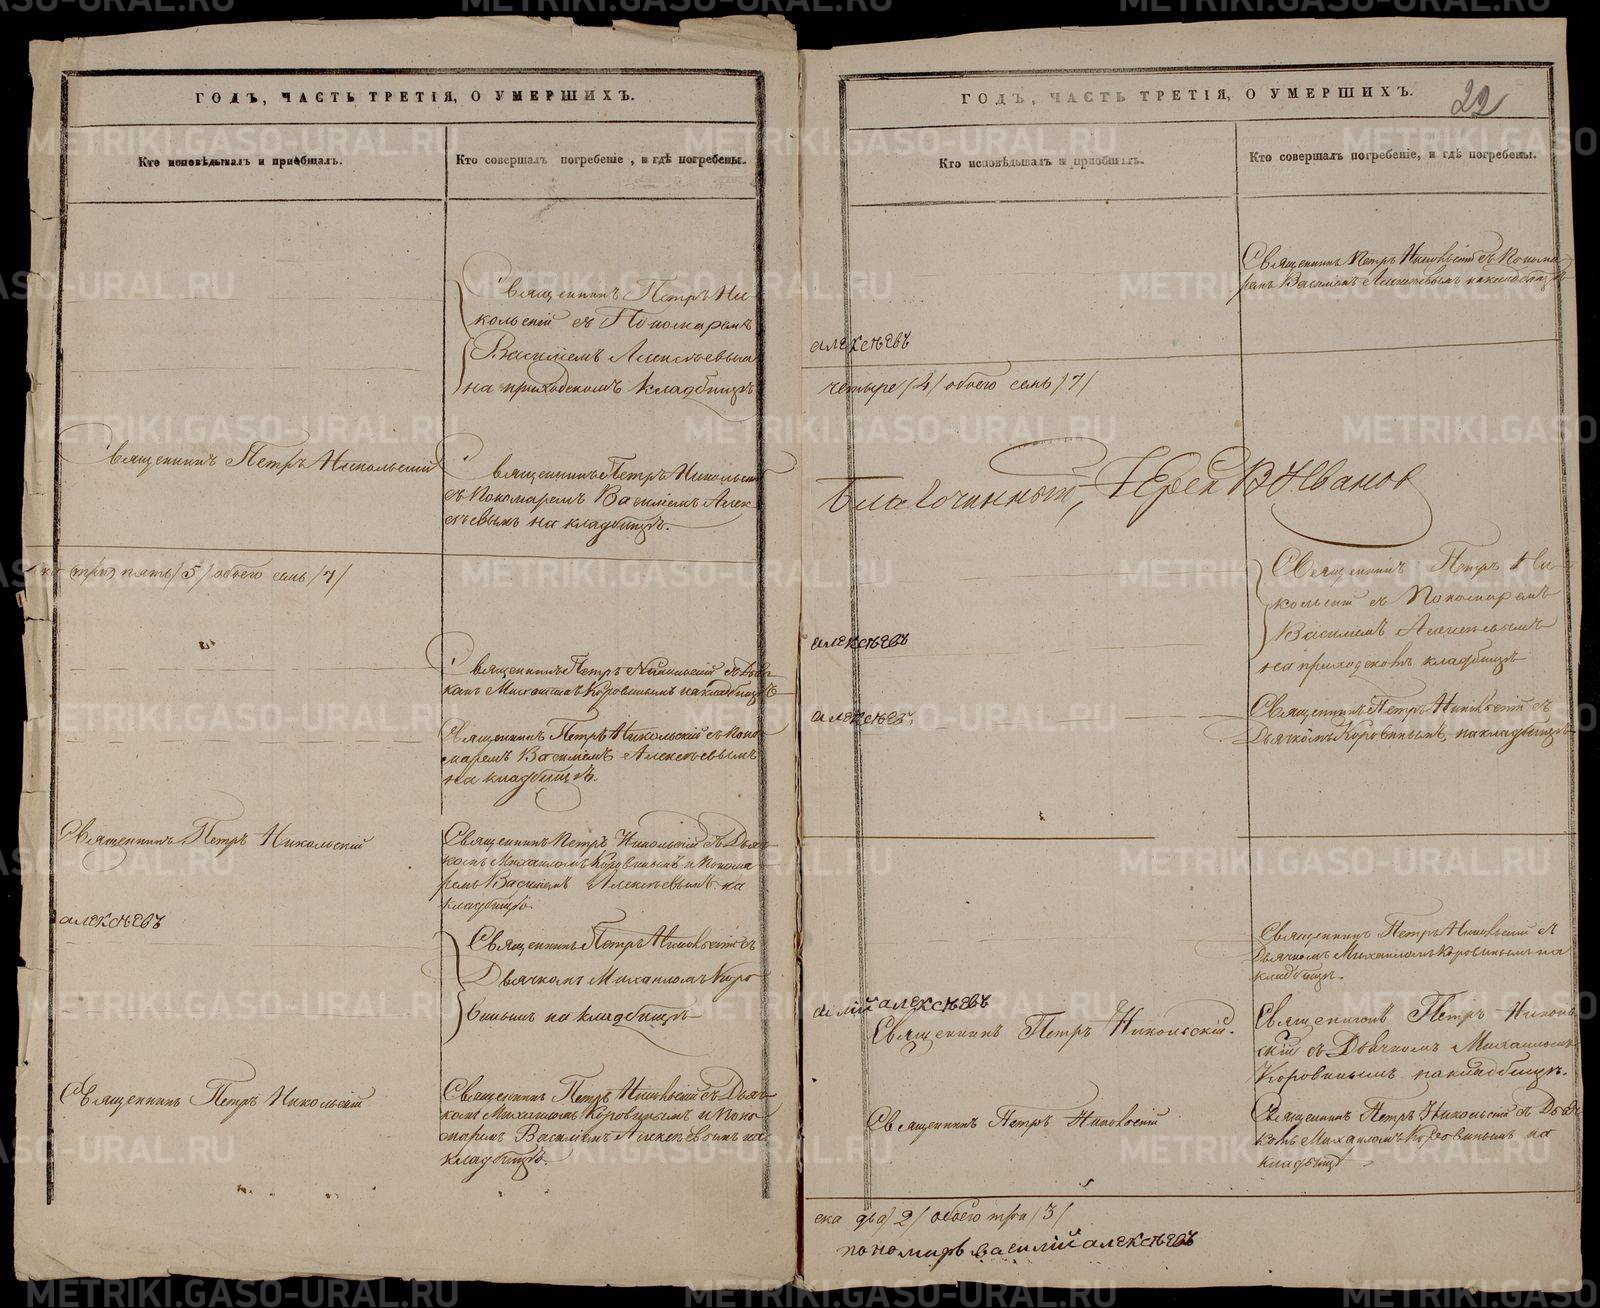 ГОДЪ, ЧАСТЬ ТРЕТІЯ, О УМЕРШИХЪ.
Кто исповѣдывалъ и пріобщалъ.
Кто совершалъ погребеніе, и гдѣ погребены.
Священникъ Петръ Ни-
кольскій съ Пономаремъ
Василіемъ Алексѣевым
на приходскомъ кладбищѣ
Священникъ Петръ Никольскій
Священникъ Петръ Никольскій
съ Пономаремъ Василіемъ Алек-
сѣевымъ на кладбищѣ.
пять /5/ обоего семь /7/
Священникъ Петръ Никольскій съ Дьяч-
комъ Михаиломъ Коровинымъ на кладбищѣ
Священникъ Петръ Никольскій съ Поно-
маремъ Василіемъ Алексѣевымъ
на кладбищѣ.
Священникъ Петръ Никольскій
Священникъ Петръ Никольскій съ Дьяч-
комъ Михаиломъ Коровинымъ и Понома-
ремъ Василіемъ Алексѣевымъ на
кладбищѣ.
алексѣевъ
Священникъ Петръ Никольскій съ
Дьячкомъ Михаиломъ Коро-
винымъ на кладбищѣ
Священникъ Петръ Никольскій
Священникъ Петръ Никольскій съ Дьяч-
комъ Михаиломъ Коровинымъ и Поно-
маремъ Василіемъ Алексѣевымъ на
кладбищѣ.
ГОДЪ, ЧАСТЬ ТРЕТІЯ, О УМЕРШИХЪ.
22
Кто исповѣдывалъ и пріобщалъ.
Кто совершалъ погребеніе, и гдѣ погребены.
Священникъ Петръ Никольскій съ Понома-
ремъ Василіемъ Алексѣевымъ на кладбищѣ
алексѣевъ
четыре /4/ обоего семь /7/
Благочинный, Іерей В Иванов
Священникъ Петръ Ни-
кольскій съ Пономаремъ
Василіемъ Алексѣевымъ
на приходскомъ кладбищѣ
алексѣевъ
алексѣевъ
Священникъ Петръ Никольскій съ
Дьячкомъ Коровинымъ на кладбищѣ
Священникъ Петръ Никольскій съ
Дьячкомъ Михаиломъ Коровинымъ на
кладбищѣ.
алексѣевъ
Священникъ Петръ Никольскій.
Священникъ Петръ Николь-
скій съ Дьячкомъ Михаиломъ
Коровинымъ на кладбищѣ.
Священникъ Петръ Никольскій
Священникъ Петръ Никольскій съ Дьяч-
комъ Михаиломъ Коровинымъ на
кладбищѣ
ска два /2/ обоего три /3/
пономарь василій алексѣевъ
METRIKI.GASO-URAL.RU